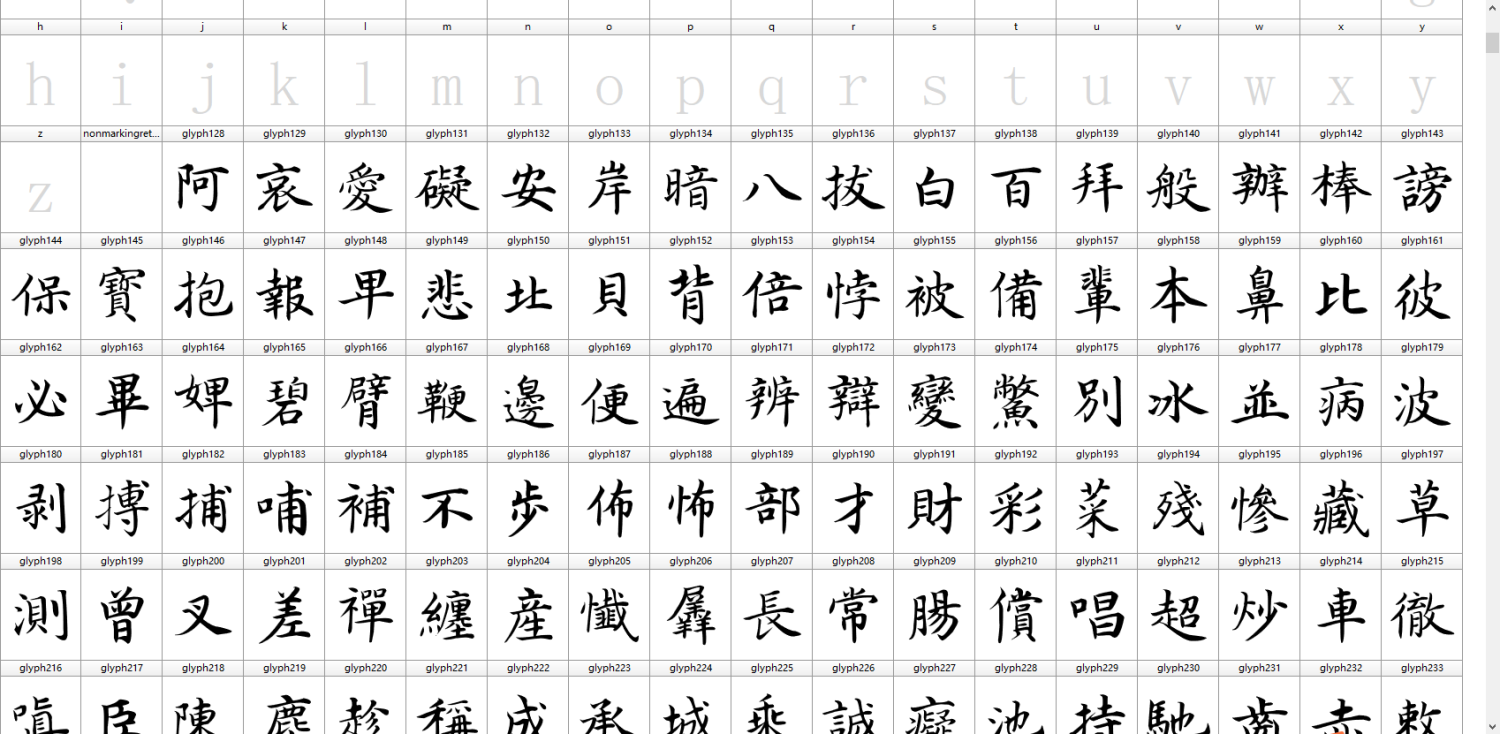 h i j k l m n o p q r s t u v w x y
h i j k l m n o p q r s t u v w x y
z nonmarkingret... glyph128 glyph129 glyph130 glyph131 glyph132 glyph133 glyph134 glyph135 glyph136 glyph137 glyph138 glyph139 glyph140 glyph141 glyph142 glyph143
z 阿 哀 愛 礙 安 岸 暗 八 拔 白 百 拜 般 辦 棒 謗
glyph144 glyph145 glyph146 glyph147 glyph148 glyph149 glyph150 glyph151 glyph152 glyph153 glyph154 glyph155 glyph156 glyph157 glyph158 glyph159 glyph160 glyph161
保 寳 抱 報 卑 悲 北 貝 背 倍 悖 被 備 輩 本 鼻 比 彼
glyph162 glyph163 glyph164 glyph165 glyph166 glyph167 glyph168 glyph169 glyph170 glyph171 glyph172 glyph173 glyph174 glyph175 glyph176 glyph177 glyph178 glyph179
必 畢 婢 碧 臂 鞭 邊 便 遍 辨 辯 變 鱉 別 冰 並 病 波
glyph180 glyph181 glyph182 glyph183 glyph184 glyph185 glyph186 glyph187 glyph188 glyph189 glyph190 glyph191 glyph192 glyph193 glyph194 glyph195 glyph196 glyph197
剥 搏 捕 哺 補 不 步 佈 怖 部 才 財 彩 菜 殘 慘 藏 草
glyph198 glyph199 glyph200 glyph201 glyph202 glyph203 glyph204 glyph205 glyph206 glyph207 glyph208 glyph209 glyph210 glyph211 glyph212 glyph213 glyph214 glyph215
測 曾 叉 差 禪 纏 産 懺 羼 長 常 腸 償 唱 超 炒 車 徹
glyph216 glyph217 glyph218 glyph219 glyph220 glyph221 glyph222 glyph223 glyph224 glyph225 glyph226 glyph227 glyph228 glyph229 glyph230 glyph231 glyph232 glyph233
嗔 臣 陳 塵 趁 稱 成 承 城 乘 誠 癡 池 持 馳 齒 赤 敕